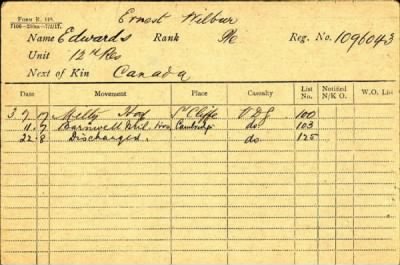 Form R. 149.
Ernest Wilbur
Name Edwards Rank Pte Reg. No. 1096043
Unit 12th Res
Next of Kin Canada
Date Movement Place Casualty List No. Notified N/K O. W.O. List
3.7.17 Milty Hos S'Cliffe V.D.G. 100
11.7 Barnwell Mil. Hos Cambridge do 103
22.8 Discharged. do 125